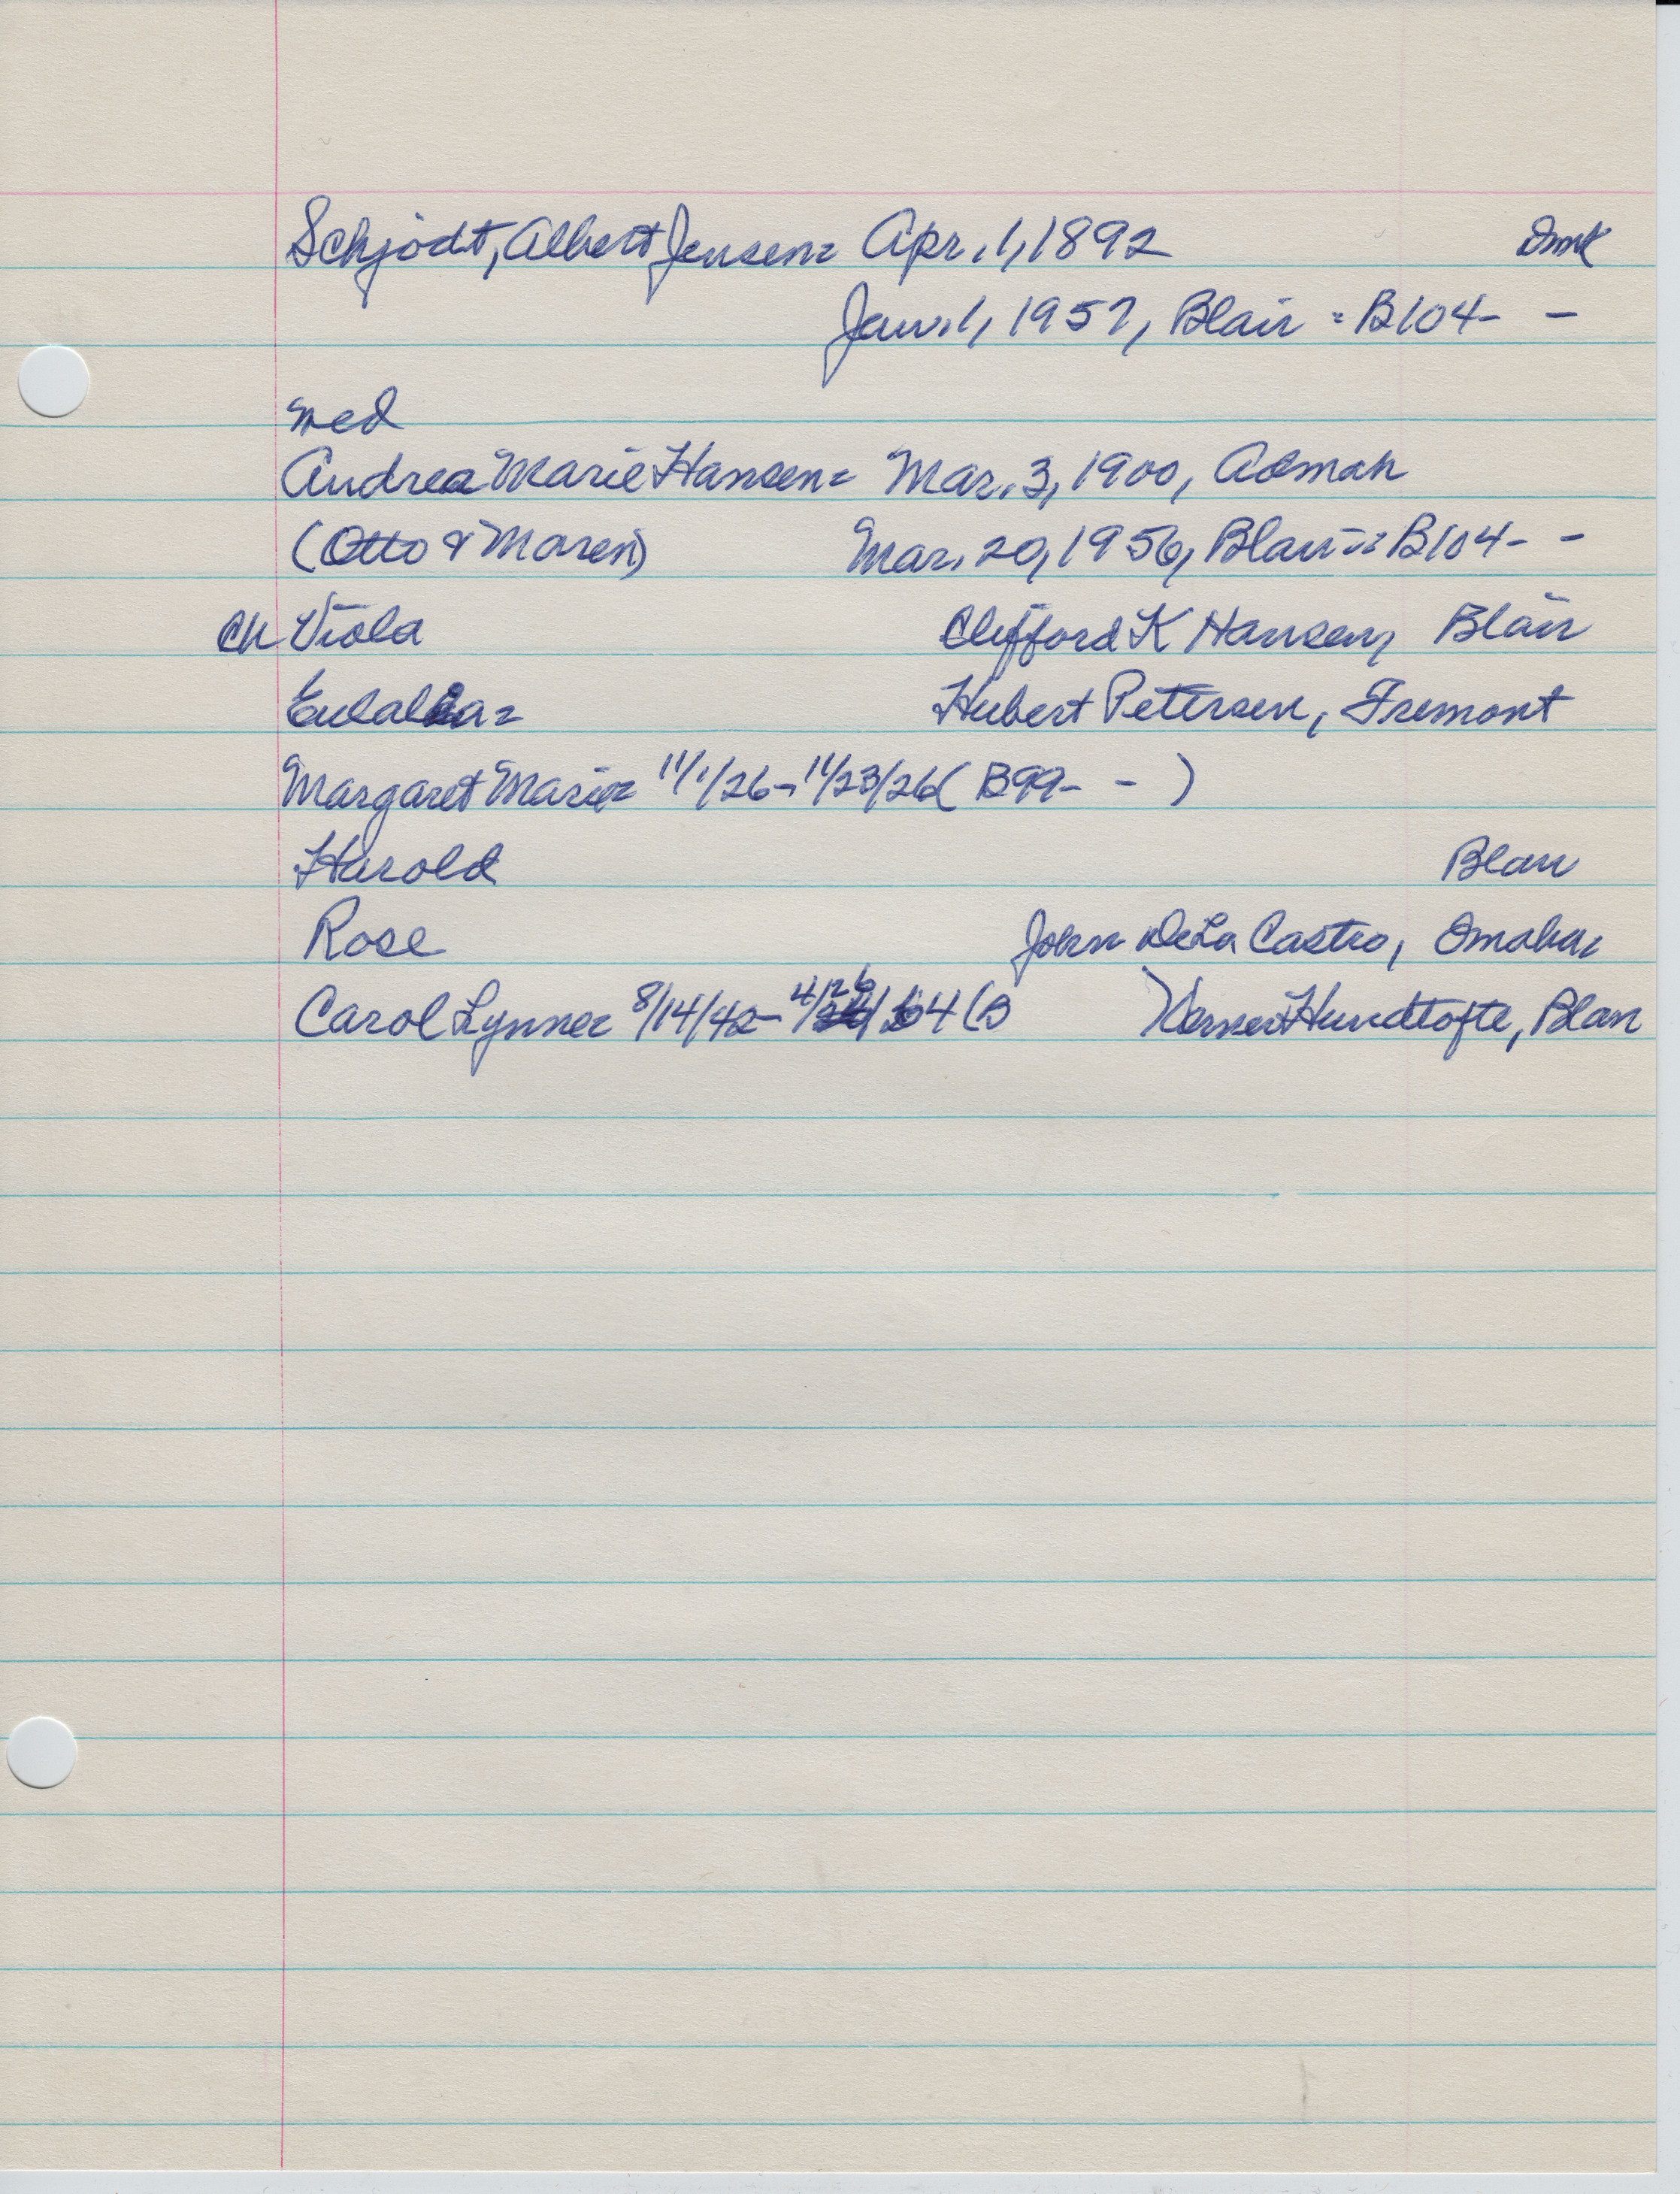 Schjodt, Albert Jensen= Apr. 1, 1892 Dmk
Jan. 1, 1957, Blair = B104- -
med
Andrea Marie Hansen= Mar. 3, 1900, Admah
(Otto & Maren) Mar. 20, 1956, Blair = B104- -
Ch Viola Clifford K Hansen, Blair
Eulalia= Hubert Petersen, Fremont
Margaret Marie= 11/1/26-11/23/26 (B99- - )
Harold Blair
Rose John DeLa Castro, Omaha
Carol Lynne= 8/14/42- 4/26/64 (B ) Verner Hundtofte, Blair